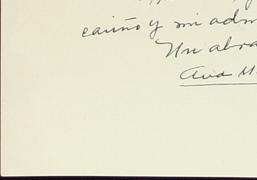 cariño y mi adm
Un abra
Ana M